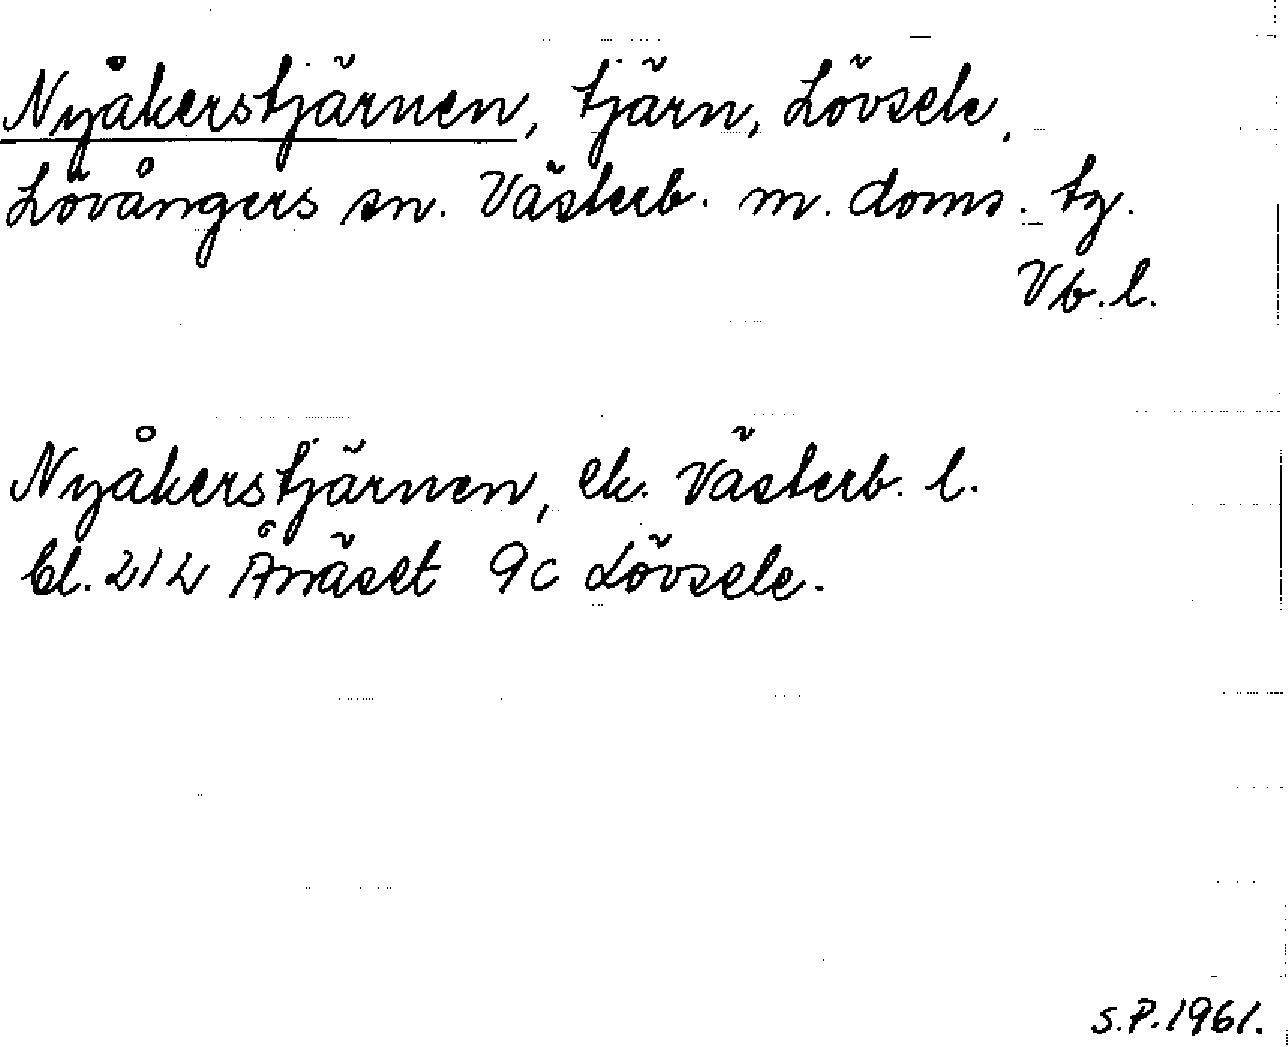 Nyåkerstjärnen, tjärn, Lövsele,
Lövångers sn. Västerb. m. doms. tg.
Vb. l.
Nyåkerstjärnen, ek. Västerb. l.
bl. 212 Ånäset 9c Lövsele.
S.P. 1961.